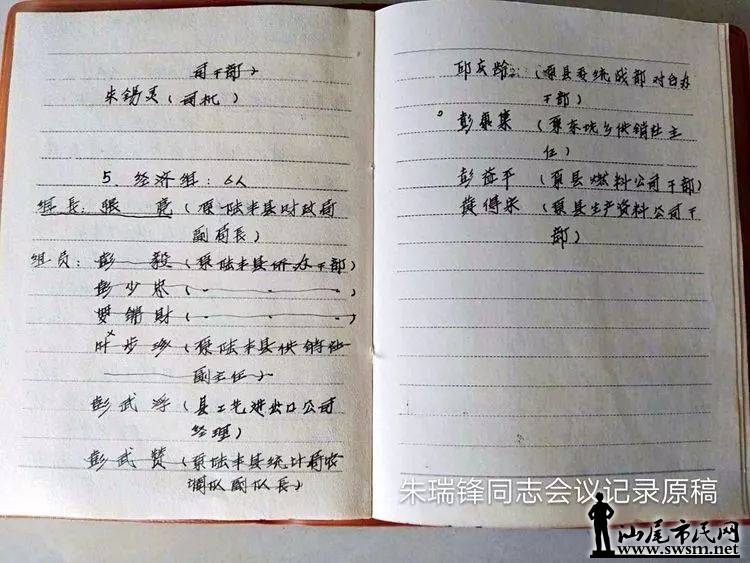 司干部)
朱锡炎(司机)
5. 经济组:6人
组长:张 亮(原陆丰县财政局
副局长)
组员:彭 毅(原陆丰县侨办干部)
彭少岽( 〃 〃 〃 )
罗锦财( 〃 〃 〃 )
叶步珍(原陆丰县供销社
副主任)
彭武浮(县工艺进出口公司
经理)
彭武赞(原陆丰县统计局农
调队副队长)
邱庆龄:(原县委统战部对台办
干部)
彭 集(原东坑乡供销社主
任)
彭益平(原县燃料公司干部)
得宋(原县生产资料公司干
部)
朱瑞锋同志会议记录原稿
汕尾市民网
www.swsm.net